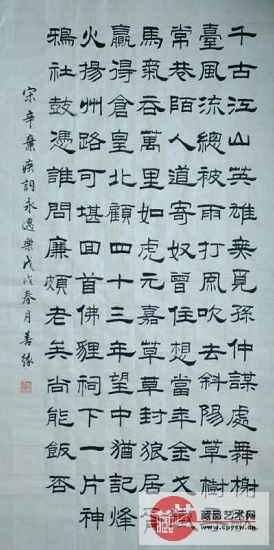 千古江山英雄無覓孫仲謀處舞榭
臺風流總被雨打風吹去斜陽草樹
常巷陌人道寄奴曾住想當年金戈鐵
馬氣吞萬里如虎元嘉草草封狼居
贏得倉皇北顧四十三年望中猶記烽
火揚州路可堪回首佛貍祠下一片神
鴉社鼓憑誰問廉頗老矣尚能飯否
宋辛棄疾詞永遇樂戊戌春月善緣
藏
藏品艺术网